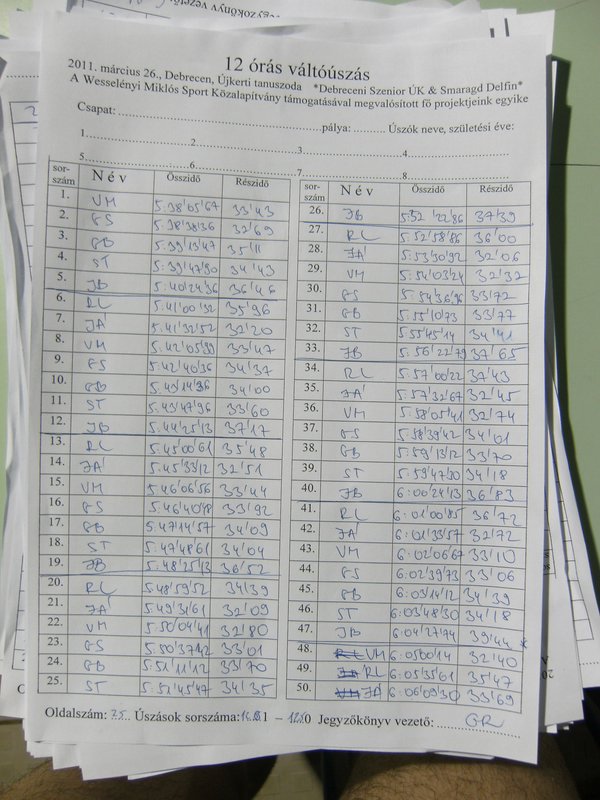 12 órás váltóúszás
2011. március 26., Debrecen, Újkerti tanuszoda *Debreceni Szenior ÚK & Smaragd Delfin*
A Wesselényi Miklós Sport Közalapítvány támogatásával megvalósított fő projektjeink egyike
Csapat: pálya: Úszók neve, születési éve:
1 2 3 4
5 6 7 8
sor-szám Név Összidő Részidő
1. VM 5:38'05'67 33'43
2. GS 5:38'38'36 32'69
3. GB 5:39'13'47 35'11
4. ST 5:39'47'90 34'43
5. JB 5:40'24'36 36'46
6. RL 5:41'00'32 35'96
7. JA' 5:41'32'52 32'20
8. VM 5:42'05'99 33'47
9. GS 5:42'40'36 34'37
10. GB 5:43'14'36 34'00
11. ST 5:43'47'96 33'60
12. JB 5:44'25'13 37'17
13. RL 5:45'00'61 35'48
14. JA' 5:45'33'12 32'51
15. VM 5:46'06'56 33'44
16. GS 5:46'40'48 33'92
17. GB 5:47'14'57 34'09
18. ST 5:47'48'61 34'04
19. JB 5:48'25'13 36'52
20. RL 5:48'59'52 34'39
21. JA' 5:49'31'61 32'09
22. VM 5:50'04'41 32'80
23. GS 5:50'37'42 33'01
24. GB 5:51'11'12 33'70
25. ST 5:51'45'47 34'35
sor-szám Név Összidő Részidő
26. JB 5:52'22'86 37'39
27. RL 5:52'58'86 36'00
28. JA' 5:53'30'92 32'06
29. VM 5:54'03'24 32'32
30. GS 5:54'36'96 33'72
31. GB 5:55'10'73 33'77
32. ST 5:55'45'14 34'41
33. JB 5:56'22'79 37'65
34. RL 5:57'00'22 37'43
35. JA' 5:57'32'67 32'45
36. VM 5:58'05'41 32'74
37. GS 5:58'39'42 34'01
38. GB 5:59'13'12 33'70
39. ST 5:59'47'30 34'18
40. JB 6:00'24'13 36'83
41. RL 6:01'00'85 36'72
42. JA' 6:01'33'57 32'72
43. VM 6:02'06'67 33'10
44. GS 6:02'39'73 33'06
45. GB 6:03'14'12 34'39
46. ST 6:03'48'30 34'18
47. JB 6:04'27'74 39'44 *
48. VM 6:05'00'14 32'40
49. RL 6:05'35'61 35'47
50. JA' 6:06'09'30 33'69
Oldalszám: Úszások sorszáma: Jegyzőkönyv vezető: GR